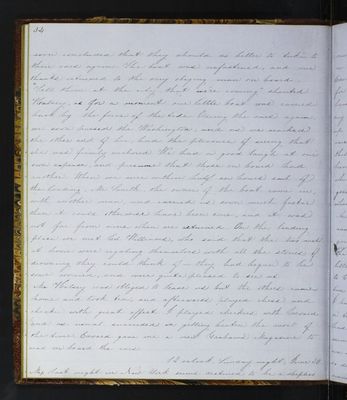 34
soon concluded that they should do better to take to
their oars again. The boat was unfastened, and our
thanks returned to the very obliging man on board.
"Tell them at the city that we're coming" shouted
Watsey, as for a moment our little boat was carried
back by the force of the tide. Using the oars again
we soon passed the Washington, and as we reached
the other end of her had the pleasure of seeing that
she was firmly anchored. We had a good laugh at our
own expense, and presume that those on board had
another. When we were within half an hour's sail of
the landing, Mr. Smith, the owner of the boat, came
with another man, and carried us over much faster
than it could otherwise have been done, and it was
not far from nine when we returned. On the landing
place we met Ed. who said that the
at home were giving themselves with all the stories of
drowning they could think of. They had begun to feel
some and were quite pleased to see us.
Mr. Watsey was obliged to leave us but the others came
home and took tea, and afterwards played chess and
checks with great effect. I played checks with Edward
and as usual succeeded in getting beaten the most of
the time. Edward gave me a Graham's Magazine to
on board the cars.
12 o'clock Sunday night, June 28
My last night in New York seems destined to be a sleepless